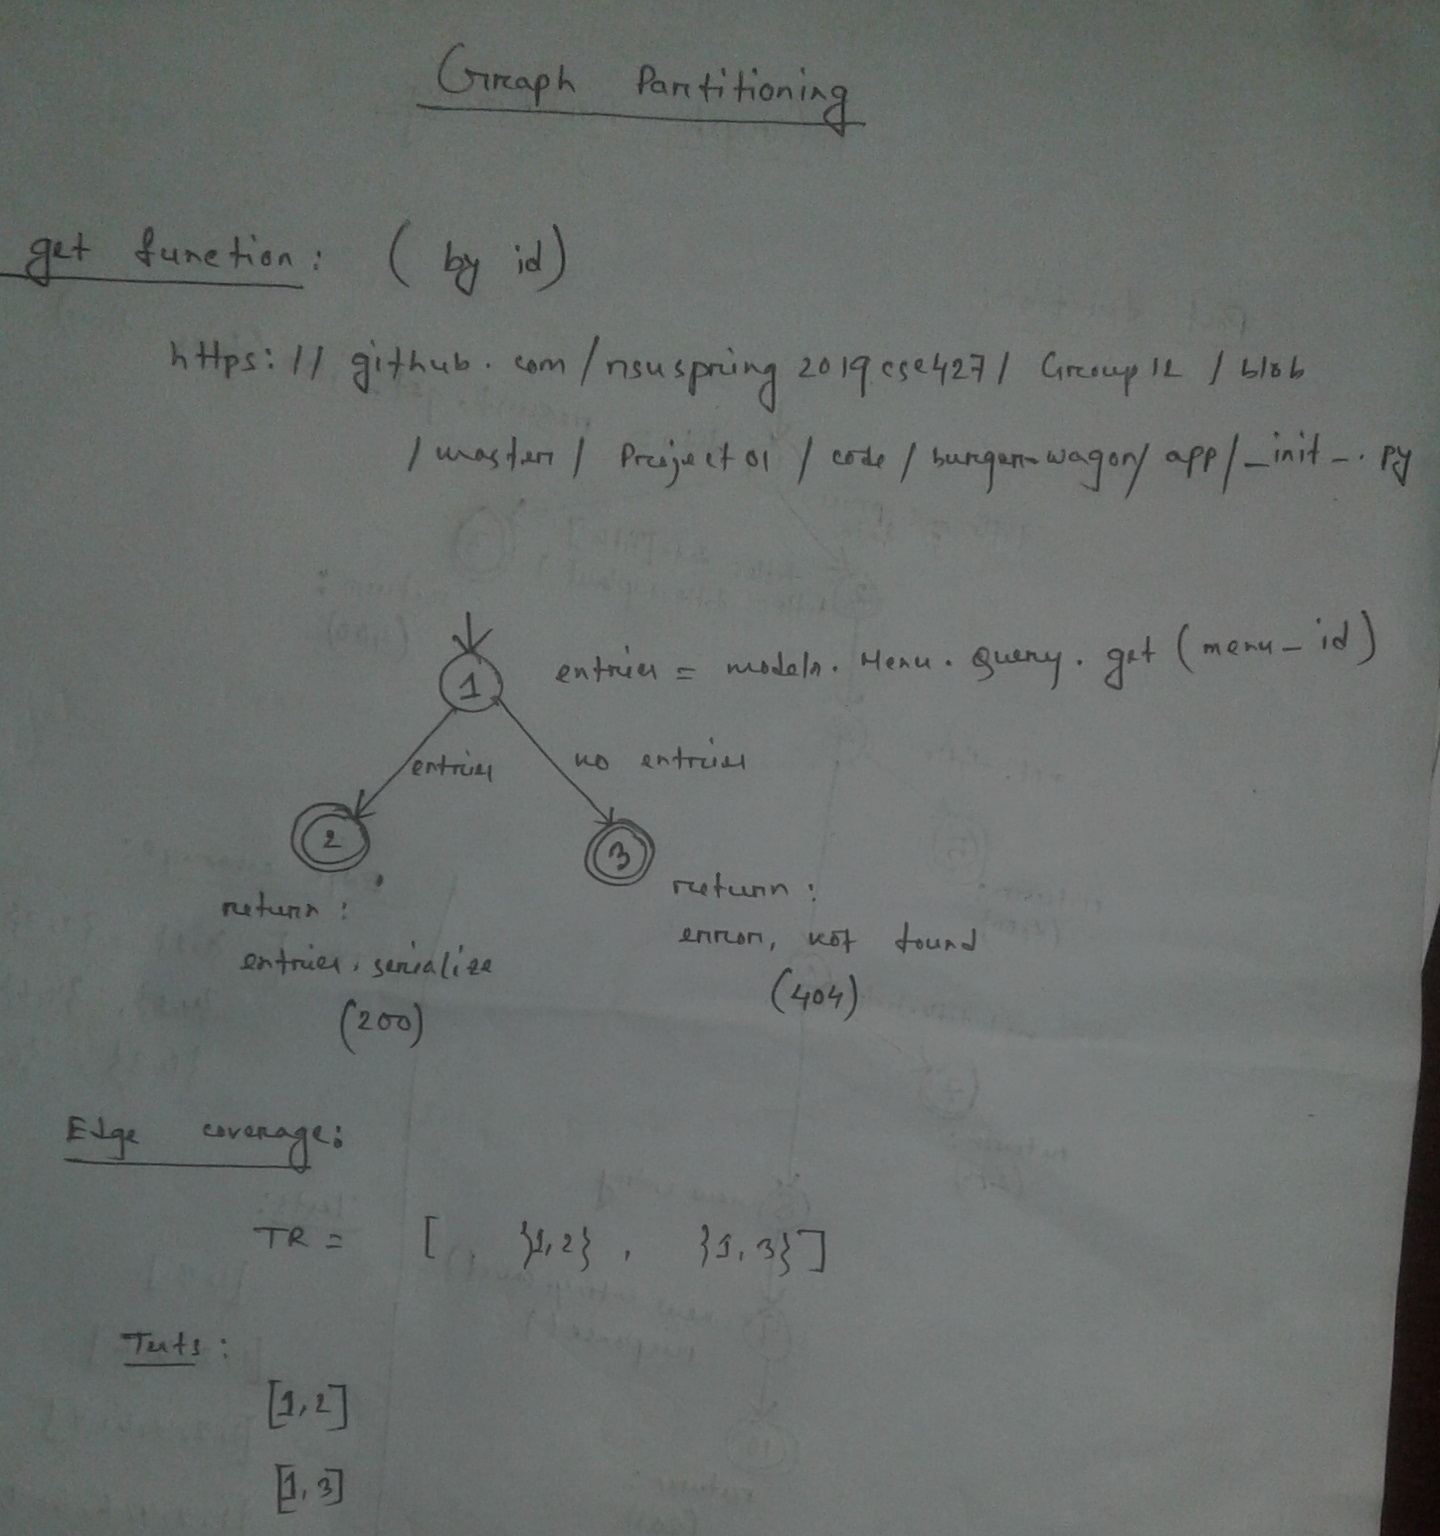 Graph Partitioning
get function: ( by id)
https://github.com/nsuspring2019cse427/Group12/blob
/master/Project01/code/burger-wagon/app/_init_.py
1 entries = models.Menu.Query.get(menu_id)
entries no entries
2 3
return: return:
entries.serialize error, not found
(200) (404)
Edge coverage:
TR = [ {1,2}, {1,3}]
Tests:
[1,2]
[1,3]